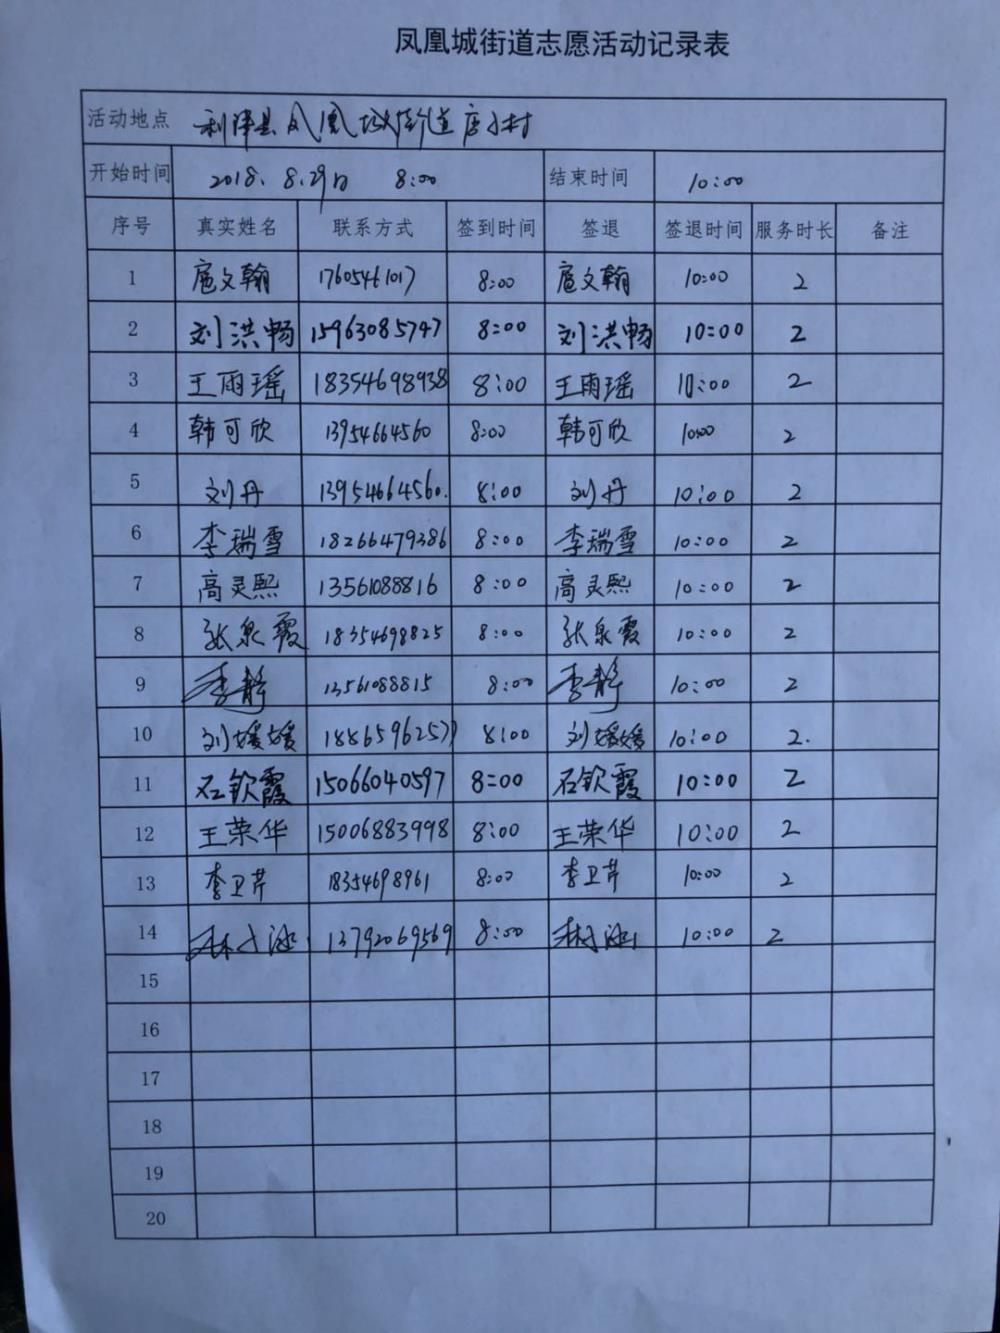 凤凰城街道志愿活动记录表
活动地点 利津县凤凰城街道 村
开始时间 2018.8.29日 8:00 结束时间 10:00
序号 真实姓名 联系方式 签到时间 签退 签退时间 服务时长 备注
1 扈文翰 17605461017 8:00 扈文翰 10:00 2
2 刘洪畅 15963085747 8:00 刘洪畅 10:00 2
3 王雨瑶 18354698938 8:00 王雨瑶 10:00 2
4 韩可欣 13954664560 8:00 韩可欣 10:00 2
5 刘丹 13954664560. 8:00 刘丹 10:00 2
6 李瑞雪 18266479386 8:00 李瑞雪 10:00 2
7 高灵熙 13561088816 8:00 高灵熙 10:00 2
8 张泉霞 18354698825 8:00 张泉霞 10:00 2
9 李静 13561088815 8:00 李静 10:00 2
10 刘媛媛 18865962577 8:00 刘媛媛 10:00 2.
11 石钦霞 15066040597 8:00 石钦霞 10:00 2
12 王荣华 15006883998 8:00 王荣华 10:00 2
13 李卫芹 18354698961 8:00 李卫芹 10:00 2
14 13792069569 8:00 10:00 2
15
16
17
18
19
20